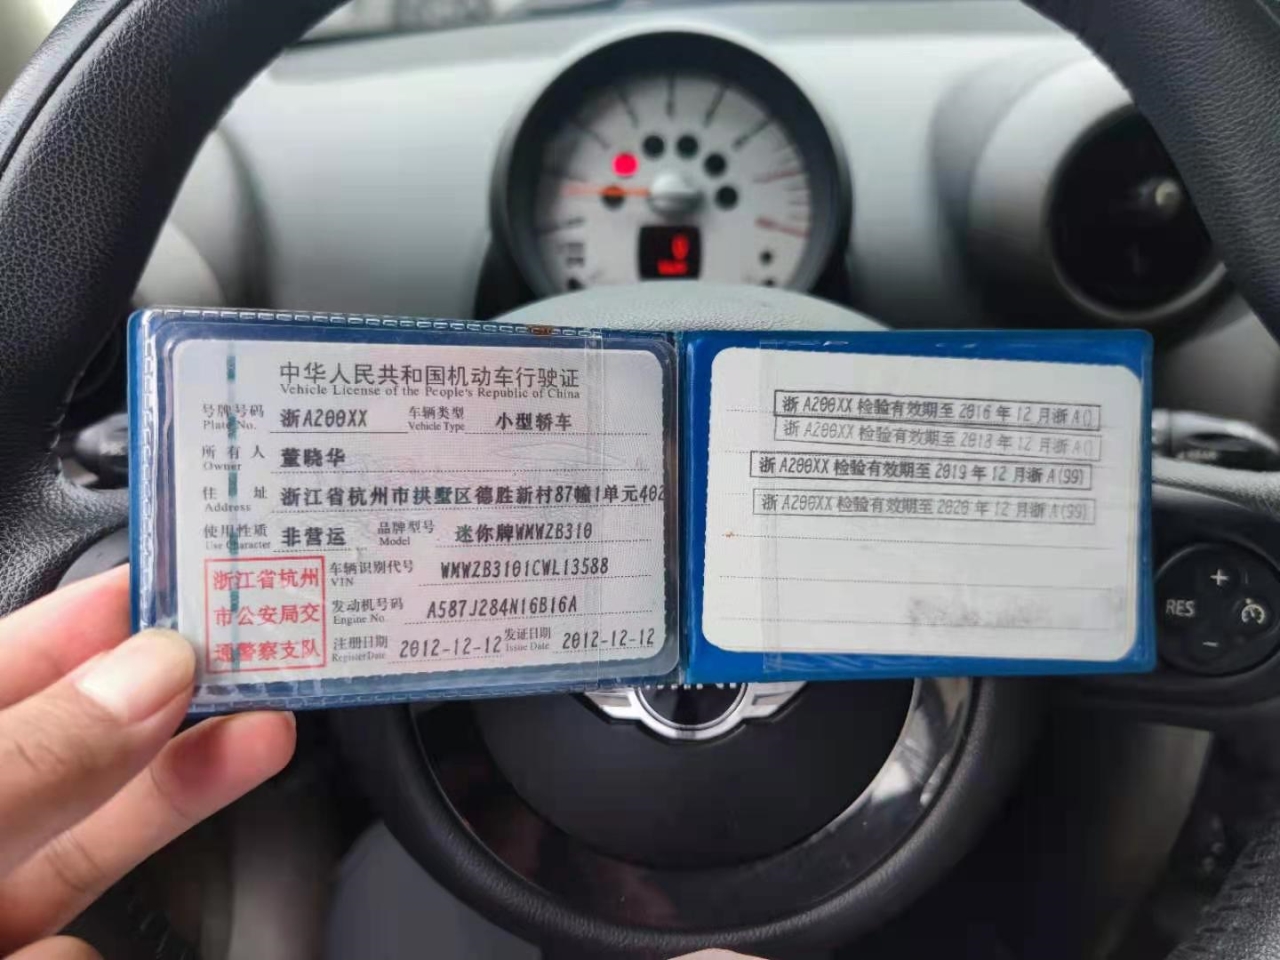 中华人民共和国机动车行驶证
Vehicle License of the People's Republic of China
号牌号码 浙A200XX 车辆类型 小型轿车
Plate No. Vehicle Type
所有人 董晓华
Owner
住址 浙江省杭州市拱墅区德胜新村87幢1单元402
Address
使用性质 非营运 品牌型号 迷你牌WMWZB310
Use Character Model
浙江省杭州
市公安局交
通警察支队
车辆识别代号 WMWZB3101CWL13588
VIN
发动机号码 A587J284N16B16A
Engine No.
注册日期 2012-12-12 发证日期 2012-12-12
Register Date Issue Date
浙A200XX 检验有效期至 2016年12月浙A()
浙A200XX 检验有效期至 2018年12月浙A()
浙A200XX 检验有效期至 2019年12月浙A(99)
浙A200XX 检验有效期至 2020年12月浙A(99)
0
+
RES
-